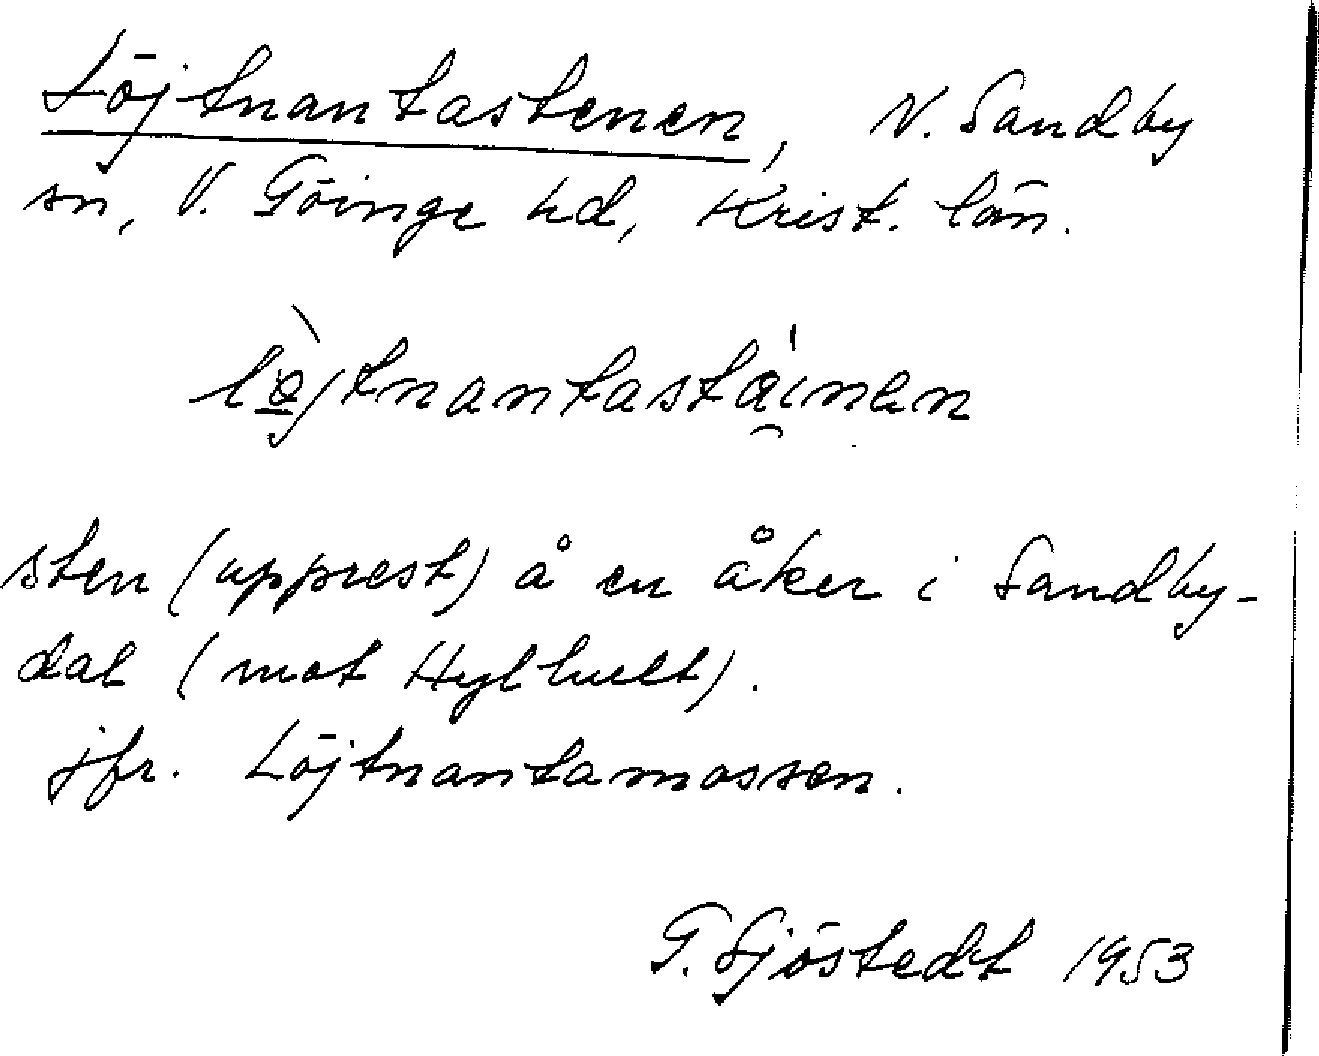 Löjtnantastenen, N. Sandby
sn, V. Göinge hd, Krist. län.
lø̀jtnantastáinen
sten (upprest) å en åker i Sandby-
dal (mot Hylhult).
jfr. Löjtnantamossen.
G. Sjöstedt 1953